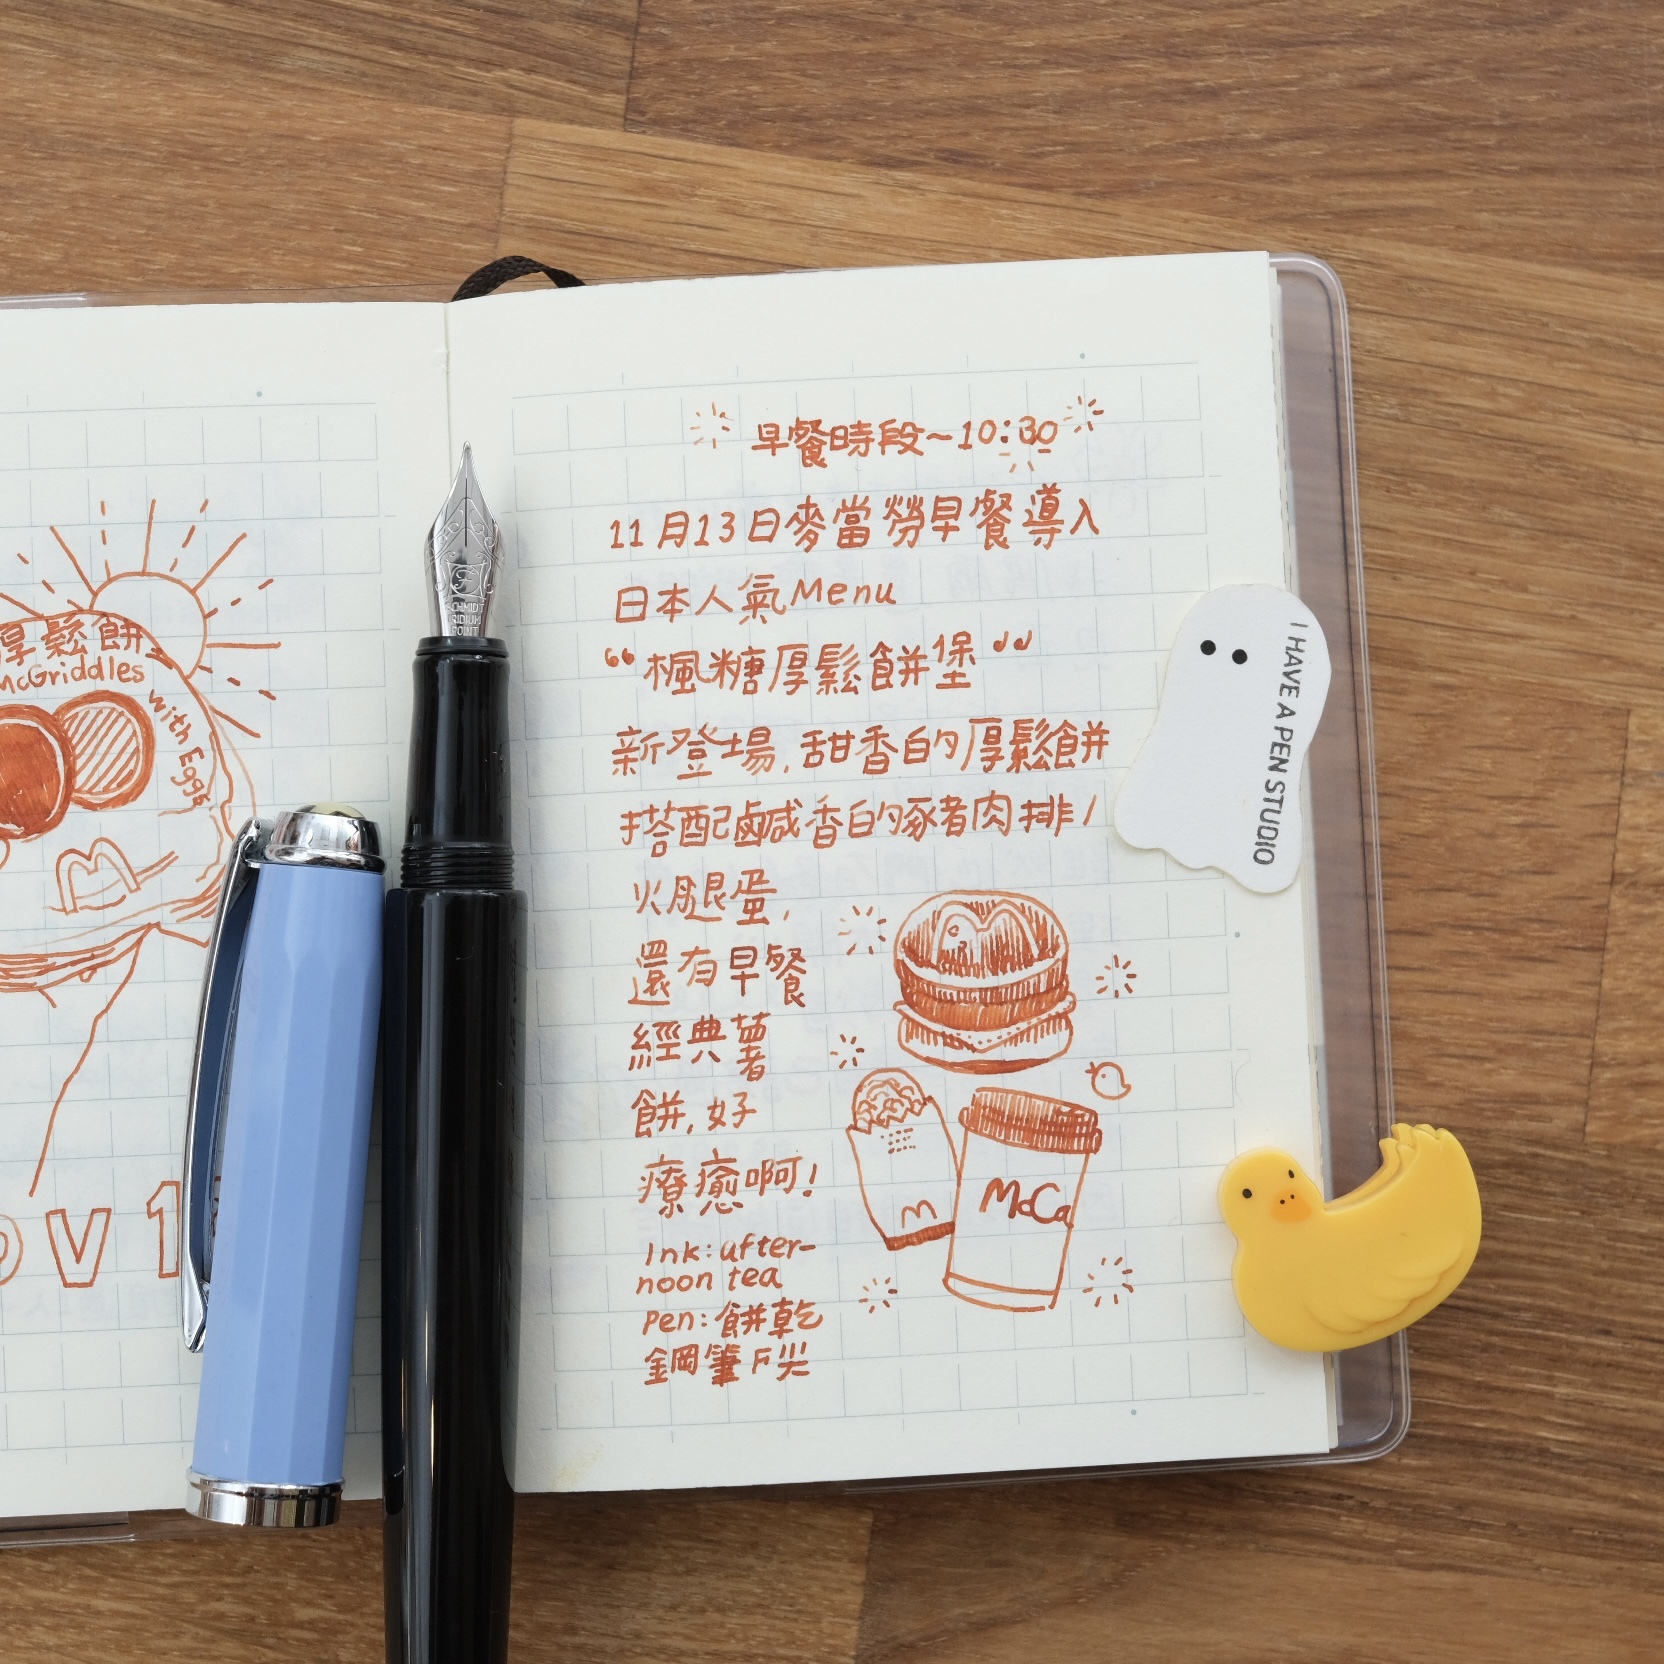 厚鬆餅
McGriddles
with Eggs
ov
早餐時段~10:30
11月13日麥當勞早餐導入
日本人氣Menu
“楓糖厚鬆餅堡”
新登場,甜香的厚鬆餅
搭配鹹香的豬肉排/
火腿蛋,
還有早餐
經典薯
餅,好
療癒啊!
Ink:after-
noon tea
Pen:餅乾
鋼筆F尖
McCa
I HAVE A PEN STUDIO
SCHMIDT
IRIDIUM
POINT